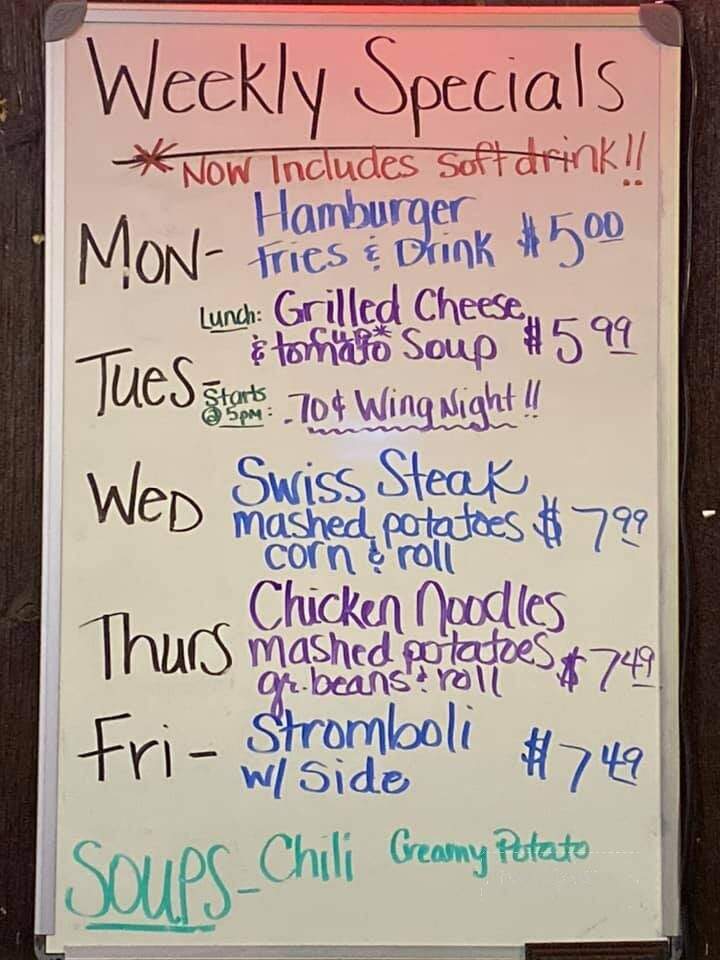 Weekly Specials
* Now Includes Soft drink!!
Mon- Hamburger
fries & Drink $5.00
Lunch: Grilled Cheese
cup*
& tomato Soup $5.99
Tues- Starts
@ 5pm: .70¢ Wing Night!!
Wed Swiss Steak
mashed potatoes $7.99
corn & roll
Thurs Chicken Noodles
mashed potatoes $7.49
gr. beans & roll
Fri- Stromboli
w/ Side $7.49
Soups- Chili Creamy Potato